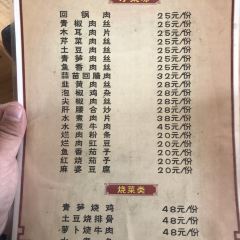 回锅肉 25元/份
青椒肉丝 25元/份
木耳肉片 25元/份
芹菜肉丝 25元/份
土豆肉丝 25元/份
青笋肉丝 25元/份
鱼香肉丝 25元/份
蒜苗回腊肉 32元/份
韭黄肉丝 28元/份
泡椒鸡杂 28元/份
尖椒肉丝 28元/份
肝腰合炒 28元/份
水煮肉片 28元/份
水煮牛肉 45元/份
烂肉粉条 20元/份
烂肉豇豆 20元/份
鱼香茄子 20元/份
红烧茄子 20元/份
麻婆豆腐 20元/份
烧菜类
青笋烧鸡 48元/份
土豆烧排骨 48元/份
萝卜烧牛肉 48元/份